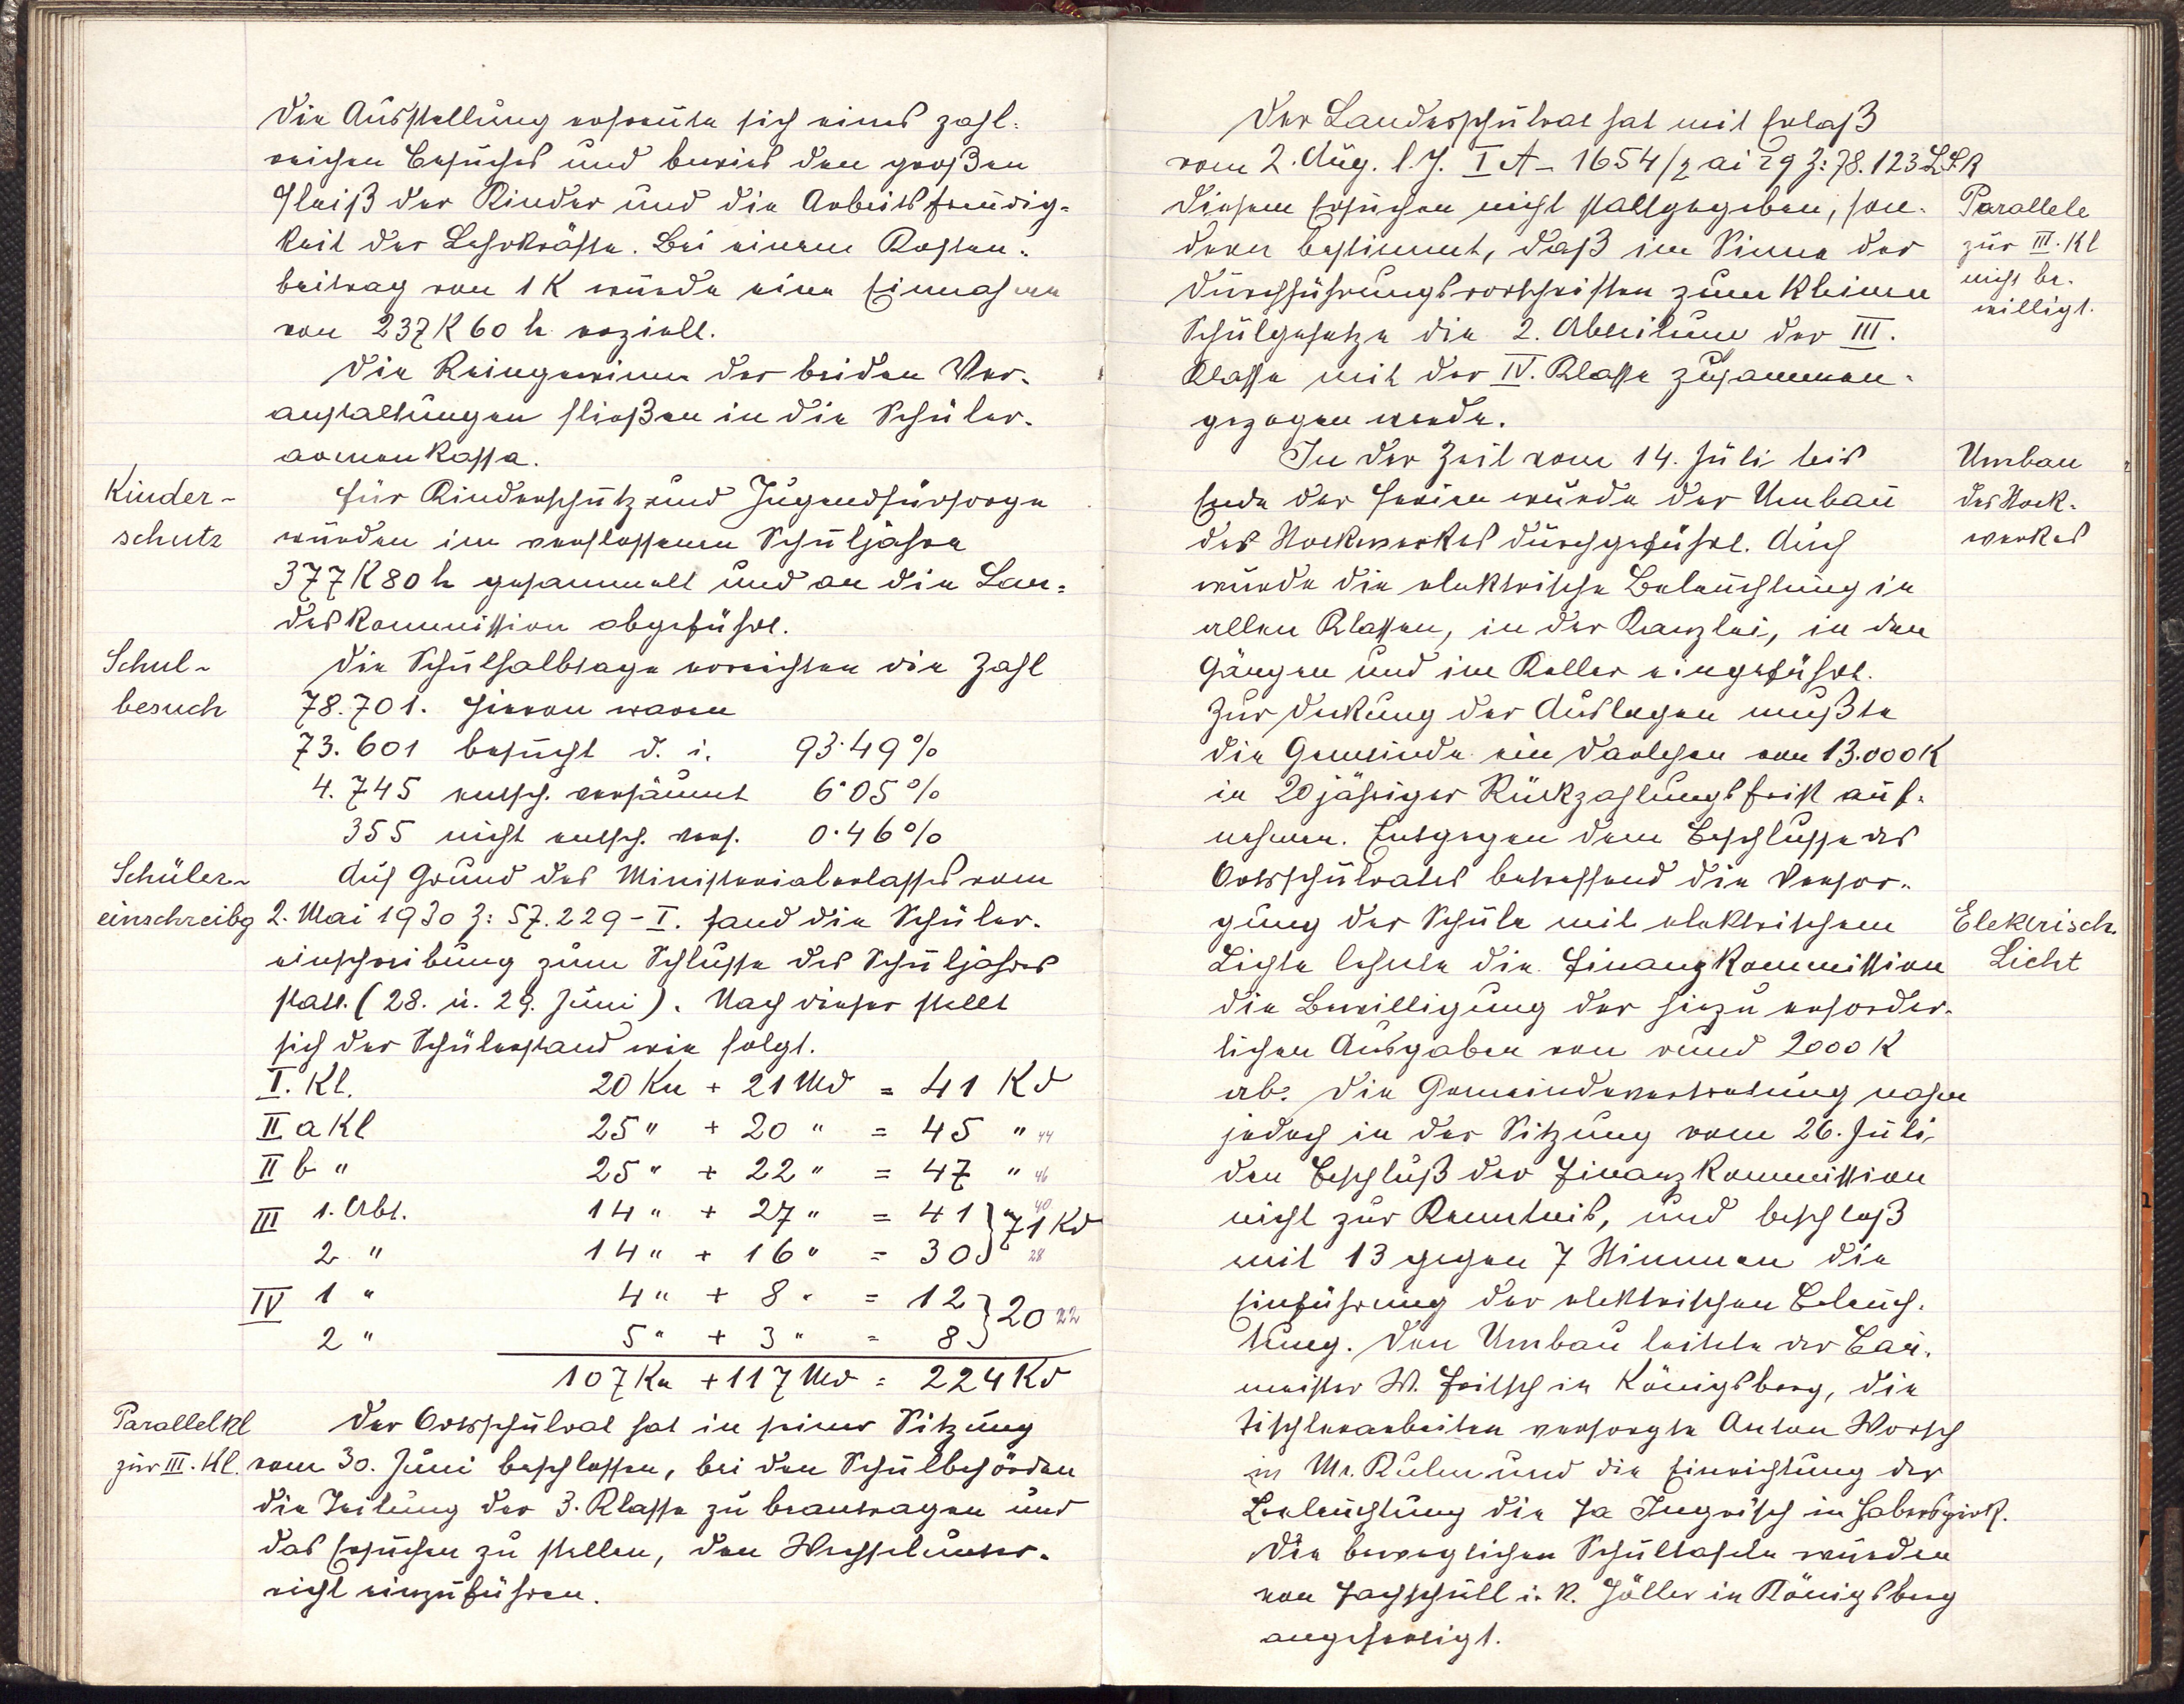 Die Ausstellung erfreute sich eines zahl-
reichen Besuches und bewies den großen
Fleiß der Kinder und die Arbeitsfreudig-
keit der Lehrkräfte. Bei einem Kosten-
beitrag von 1 K wurde eine Einnahme
von 237 K 60 h erzielt.
Die Reingewinne der beiden Ver-
anstaltungen fließen in die Schüler-
armenkassa.
Kinder-
schutz
Für Kinderschutz und Jugendfürsorge
wurden im verflossenen Schuljahre
377 K 80 h gesammelt und an die Lan-
deskommission abgeführt.
Schul-
besuch
Die Schulhalbtage erreichten die Zahl
78.701. Hievon waren
73.601 besucht d. i. 93·49 %
4.745 entsch. versäumt 6·05 %
355 nicht entsch. vers. 0·46 %
Schüler-
einschreibg
Auf Grund des Ministerialerlasses vom
2. Mai 1930 Z: 57.229-I. fand die Schüler-
einschreibung zum Schlusse des Schuljahres
statt. (28. u. 29. Juni). Nach dieser stellt
sich der Schülerstand wie folgt.
I. Kl. 20 Kn + 21 Md = 41 Kd
II a Kl 25 " + 20 " = 45 " 44
II b " 25 " + 22 " = 47 " 46
III 1. Abt. 14 " + 27 " = 41 } 71 Kd 40
2 " 14 " + 16 " = 30 28
IV 1 " 4 " + 8 " = 12 } 20 22
2 " 5 " + 3 " = 8
107 Kn + 117 Md = 224 Kd
Parallelkl
zur III. Kl.
Der Ortsschulrat hat in seiner Sitzung
vom 30. Juni beschlossen, bei den Schulbehörden
die Teilung der 3. Klasse zu beantragen und
das Ersuchen zu stellen, den Wechselunter-
richt einzuführen.
Der Landesschulrat hat mit Erlaß
vom 2. Aug. l. J. I A - 1654/2 ai 29 Z: 78.123 L.S.R
diesem Ersuchen nicht stattgegeben, son-
dern bestimmt, daß im Sinne der
Durchführungsvorschriften zum kleinen
Schulgesetze die 2. Abteilung der III.
Klasse mit der IV. Klasse zusammen-
gezogen werde.
Parallele
zur III. Kl
nicht be-
willigt.
In der Zeit vom 14. Juli bis
Ende der Ferien wurde der Umbau
des Stockwerkes durchgeführt. Auch
wurde die elektrische Beleuchtung in
allen Klassen, in der Kanzlei, in den
Gängen und im Keller eingeführt.
Umbau
des Stock-
werkes
Zur Deckung der Auslagen mußte
die Gemeinde ein Darlehen von 13.000 K
in 20 jähriger Rückzahlungsfrist auf-
nehmen. Entgegen dem Beschlusse des
Ortsschulrates betreffend die Versor-
gung der Schule mit elektrischem
Lichte lehnte die Finanzkommission
die Bewilligung der hiezu erforder-
lichen Ausgaben von rund 2000 K
ab. Die Gemeindevertretung nahm
jedoch in der Sitzung vom 26. Juli
den Beschluß der Finanzkommission
nicht zur Kenntnis, und beschloß
mit 13 gegen 7 Stimmen die
Einführung der elektrischen Beleuch-
tung. Den Umbau leitete der Bau-
meister W. Fritsch in Königsberg, die
Tischlerarbeiten versorgte Anton Worsch
in Mr. Kulm und die Einrichtung der
Beleuchtung die Fa Ingrisch in Haberspirk.
Die beweglichen Schultafeln wurden
von Fachschull. i. R. Zöller in Königsberg
angefertigt.
Elektrisch.
Licht